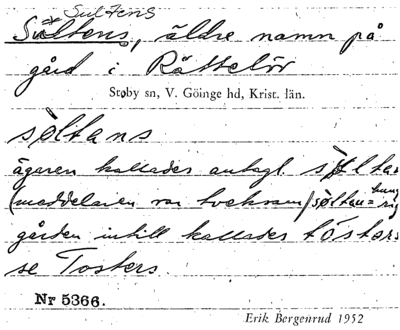 Sultens
Sultens, äldre namn på
gård i Röttelöv
Stoby sn, V. Göinge hd, Krist. län.
søltans
ägaren kallades antagl. søltan
(meddelaren var tveksam) søltan=
gården intill kallades tóstars
se Tosters.
Nr 5366.
Erik Bergenrud 1952